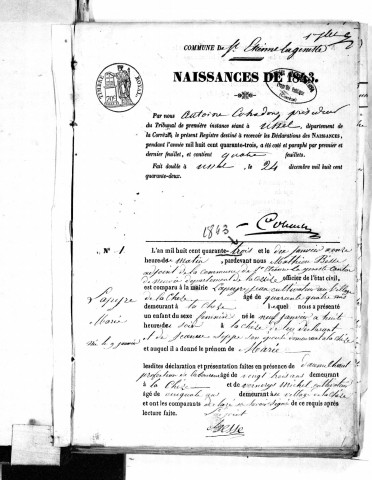 1er feuillet
COMMUNE DE St Etienne la geneste
TIMBRE ROYAL
NAISSANCES DE 1843.
Par nous antoine Cohadon président
du Tribunal de première instance séant à ussel, département de
la Corrèze, le présent Registre destiné à recevoir les Déclarations des NAISSANCES,
pendant l'année mil huit cent quarante-trois, a été coté et paraphé par premier et
dernier feuillet, et contient quatre feuillets.
Fait double à ussel, le 24 décembre mil huit cent
quarante-deux.
1843
N° 1
L'an mil huit cent quarante-trois et le dix janvier à onze
heures du matin, pardevant nous Mathieu
adjoint de la commune de St Etienne la geneste canton
de neuvic département de la Corrèze officier de l'état civil,
est comparu à la mairie Lapeyre jean cultivateur au village
de la Chèze âgé de quarante quatre ans
demeurant à la Cheze lequel nous a présenté
un enfant du sexe féminin né le neuf janvier à huit
heures du soir à la chèze de lui déclarant
et de jeanne son épouse demeurant à la chèze
et auquel il a donné le prénom de
Marie
Lapeyre
Marie
Née le 9 janvier
lesdites déclaration et présentation faites en présence de
profession de âgé de vingt demeurant
à la Chèze et de michel cultivateur
âgé de demeurant au village de la chèze
et ont les comparants déclaré ne savoir signer de ce requis après
lecture faite.